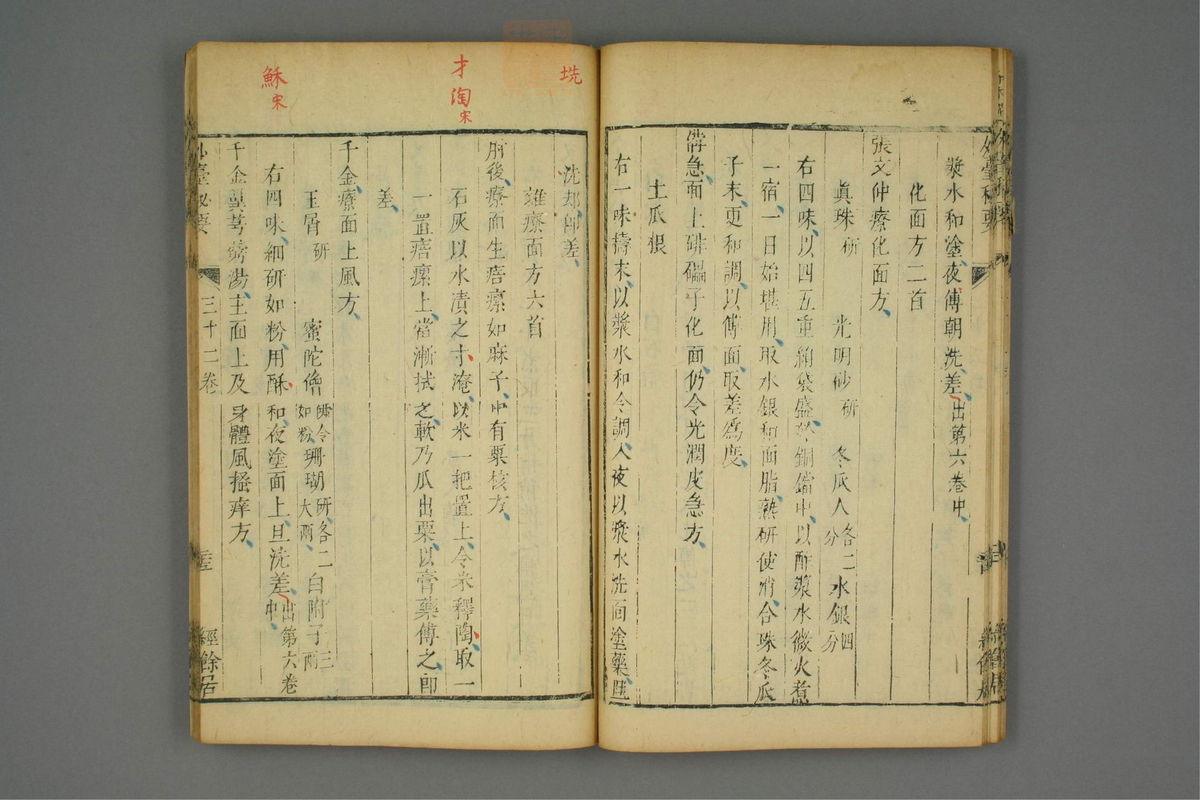 漿水和塗夜傅朝洗差出第六卷中
化面方二首
張文仲療化面方
眞珠研 光明砂研 冬瓜人各二分 水銀四分
右四味以四五重絹袋盛於銅鐺中以酢漿水微火煮
一宿一日始堪用取水銀和面脂熟研使消合珠冬瓜
子末更和調以傅面取差爲度
急面上䃀礧子化面仍令光潤皮急方
土瓜根
右一味擣末以漿水和令調入夜以漿水洗面塗藥
外臺秘要
洗却卽差
雜療面方六首
肘後療面生㾦㿔如麻子中有粟核方
石灰以水漬之寸淹以米一把置上令米釋陶取一
一置㾦㿔上當漸拭之軟乃爪出粟以膏藥傅之卽
差
千金療面上風方
玉屑研 蜜陀僧 如粉 珊瑚研各二大兩 白附子三兩
右四味細研如粉用酥和夜塗面上旦洗差出第六卷中
千金蔓菁湯主面上及身體風搔痒方
外臺秘要 三十二卷 經餘居
垙
才
淘宋
穌宋